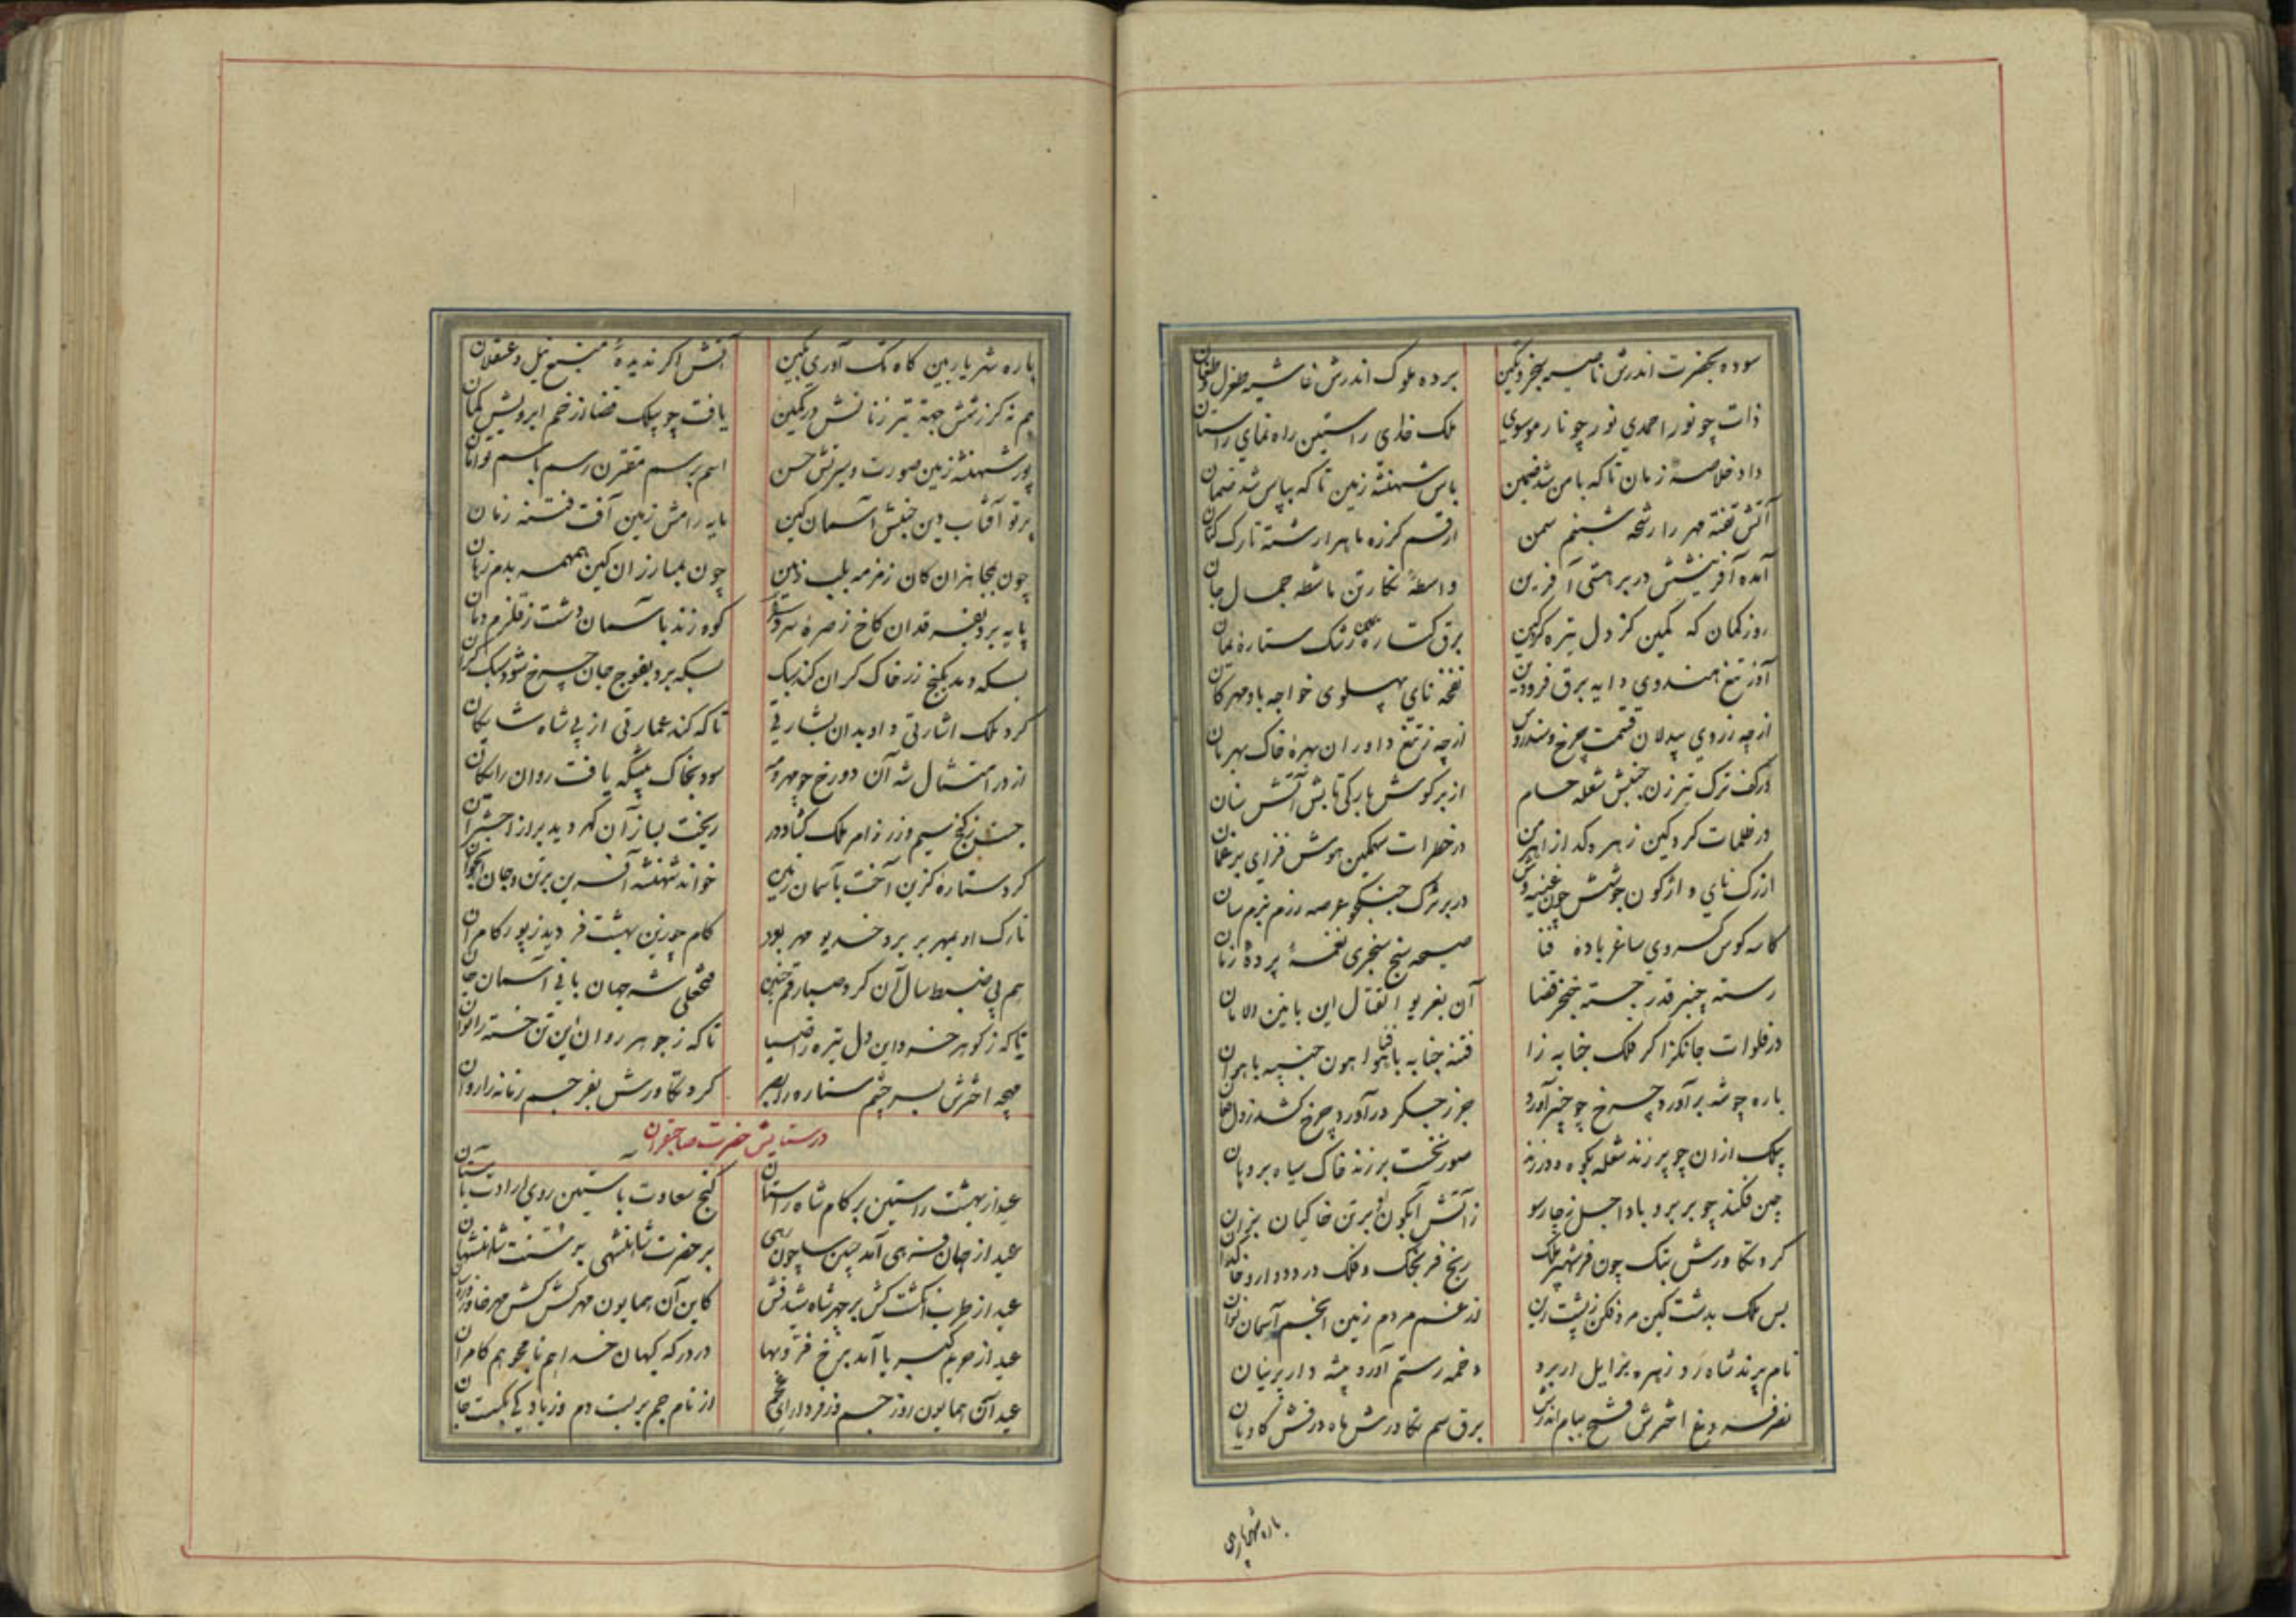 سوده بحضرت اندرش ناصیه سنجر و تکین برده ملوک اندرش غاشیه طغرل و طغان
ذات چو نور احمدی نور چو نار موسوی ملک خدای راستین راه نمای راستان
داد خلاصهٔ زمان تا که بامن شد ضمین باس شهنشه زمین تا که بپاس شد ضمان
آتش تفته مهر را رشحه شبنم سمن ارقم کرزه ماهرا رشته تارک کتان
آمده آفرینشش در بر هستی آفرین واسطهٔ نکارتن ماشطه جمال جان
روز کمان که کمین کز دل تیره کردکین برق ستاره
آذر تیغ هندوی دایه برق فرودین نفخه نای پهلوی خواجه باد مهرکان
از چه ز روی بیدلان قسمت چرخ سندروس از چه ز تیغ داوران بهرهٔ خاک بهرمان
در کف ترک تیر زن جنبش شعله حسام از بر کوش بارکی تابش آتش سنان
در ظلمات کرد کین زهره کداز اهرمن در خطرات سهمکین هوش فزای بر
از رک نای و اژکون جوشش خون در بر ترک جنکجو عرصه رزم بزم سان
کاسه کوس کسروی ساغر بادهٔ فنا صیحه سنج سنجری نغمهٔ پردهٔ
رسته چنبر قدر جسته خنجر قضا آن بغریو القتال این بانین الامان
در فلوات جانکزا کر ملک جنابه زا فتنه جنابه با هوا هون جنیبه با هوان
باره چو شه برآورد چرخ چو خنجر آورد جزر جسکر در آورد چرخ کشد ز دل فغان
پیلک از ان چو پر زند شعله بکوه و در زند صور نخست بر زند خاک سیاه بر دهان
چین فکند چو بر برو باد اجل ز چارسو ز آتش آبکون بر تن خاکیان بزان
کرد تکاورش بتک چون فر شهپر ملک رنج فرنجک و فلک درد دوار و
بس ملک بدشت کین مرد فکن ز پشت زین نز غم مردم زمین انجم آسمان
نام پرند شاه رد زهره بزابل ار برد دخمه رستم آورد بیشه دار پرنیان
نصر فروغ اخترش فتح بیام اندرش برق سم تکاورش ماه درفش کاویان
باره شهریار
باره شهریار بین کاه تک آوری بکین آتش اکر ندیدهٔ منبع نیل و عسقلان
هم نه کرزتش جبهه تیر زنانش در کمین یافت چو پیلک قضا از خم ابرویش کمان
پور شهنشه زمین صورت و سیرتش حسن اسم برسم مقترن رسم باسم توامان
پرتو آفتاب دین جنبش آسمان کین مایه رامش زمین آفت فتنه زمان
چون بمجاهزان کان زمزمه بلب ذهین چون بمبارزان کین همهمه بدم زمان
پایه برد بفرقدان کاخ ز صرهٔ کوه زند بآسمان دشت ز قلزم دمان
بسکه دمد بکنج زر خاک کران کند سبک بسکه برد بفوج جان چرخ شود سبک کران
کرد ملک اشارتی داد بدان بشارتی تا که کند عمارتی از پی شاه شایکان
از در امتثال شه آن دو رخ چو مهر و مه سود بخاک پیشکه یافت روان رایکان
جست ز کنج سیم و زر زام ملک کشاد در ریخت نیاز آن کهر دید براز
کرد ستارهٔ کزین آخت بآسمان زمین خواند شهنشه آفرین بر تن و جان
تارک او بمهر بر برد خدیو مهر بود کام چو زین بهشت فر دید ز پور کامران
هم پی ضبط سال آن کرد صبا رقم چنین فتحعلی شه جهان بانی آسمان
تا که ز کوهر خرد این دل تیره را ضیا تا که ز جوهر روان این تن خسته را توان
مهچه اخترش بسر چشم ستاره را بصر کرد تکاورش بفر جسم زمانه را روان
در ستایش حضرت صاحبقران
عید از بهشت راستین بر کام شاه راستان کنج سعادت باستین روی ارادت بآستان
عید از جهان فرهی آمد چنین سا چون رهی بر حضرت شاهنشهی بر سنت شاهنشهان
عید از طرب انکشت کش بر چهر شاه کاین آن همایون مهرکش
عید از حریم کبریا آمد برخ فر و بها در درکه کیهان خدا هم نامجو هم کامران
عید آن همایون روز جم وز فر دارای عجم از نام جم بربست دم وز یاد کی